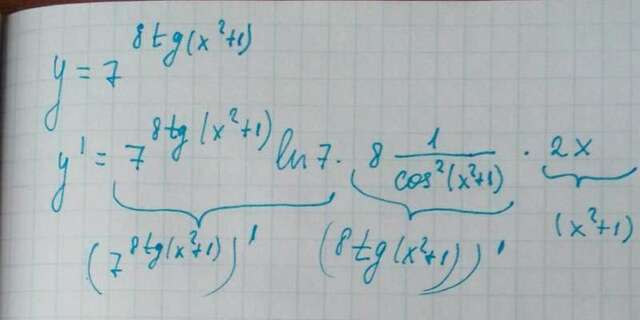 y = 7^{8tg(x²+1)}
y' = 7^{8tg(x²+1)} ln 7 · 8 1/cos²(x²+1) · 2x
(7^{8tg(x²+1)})' (8tg(x²+1))' (x²+1)